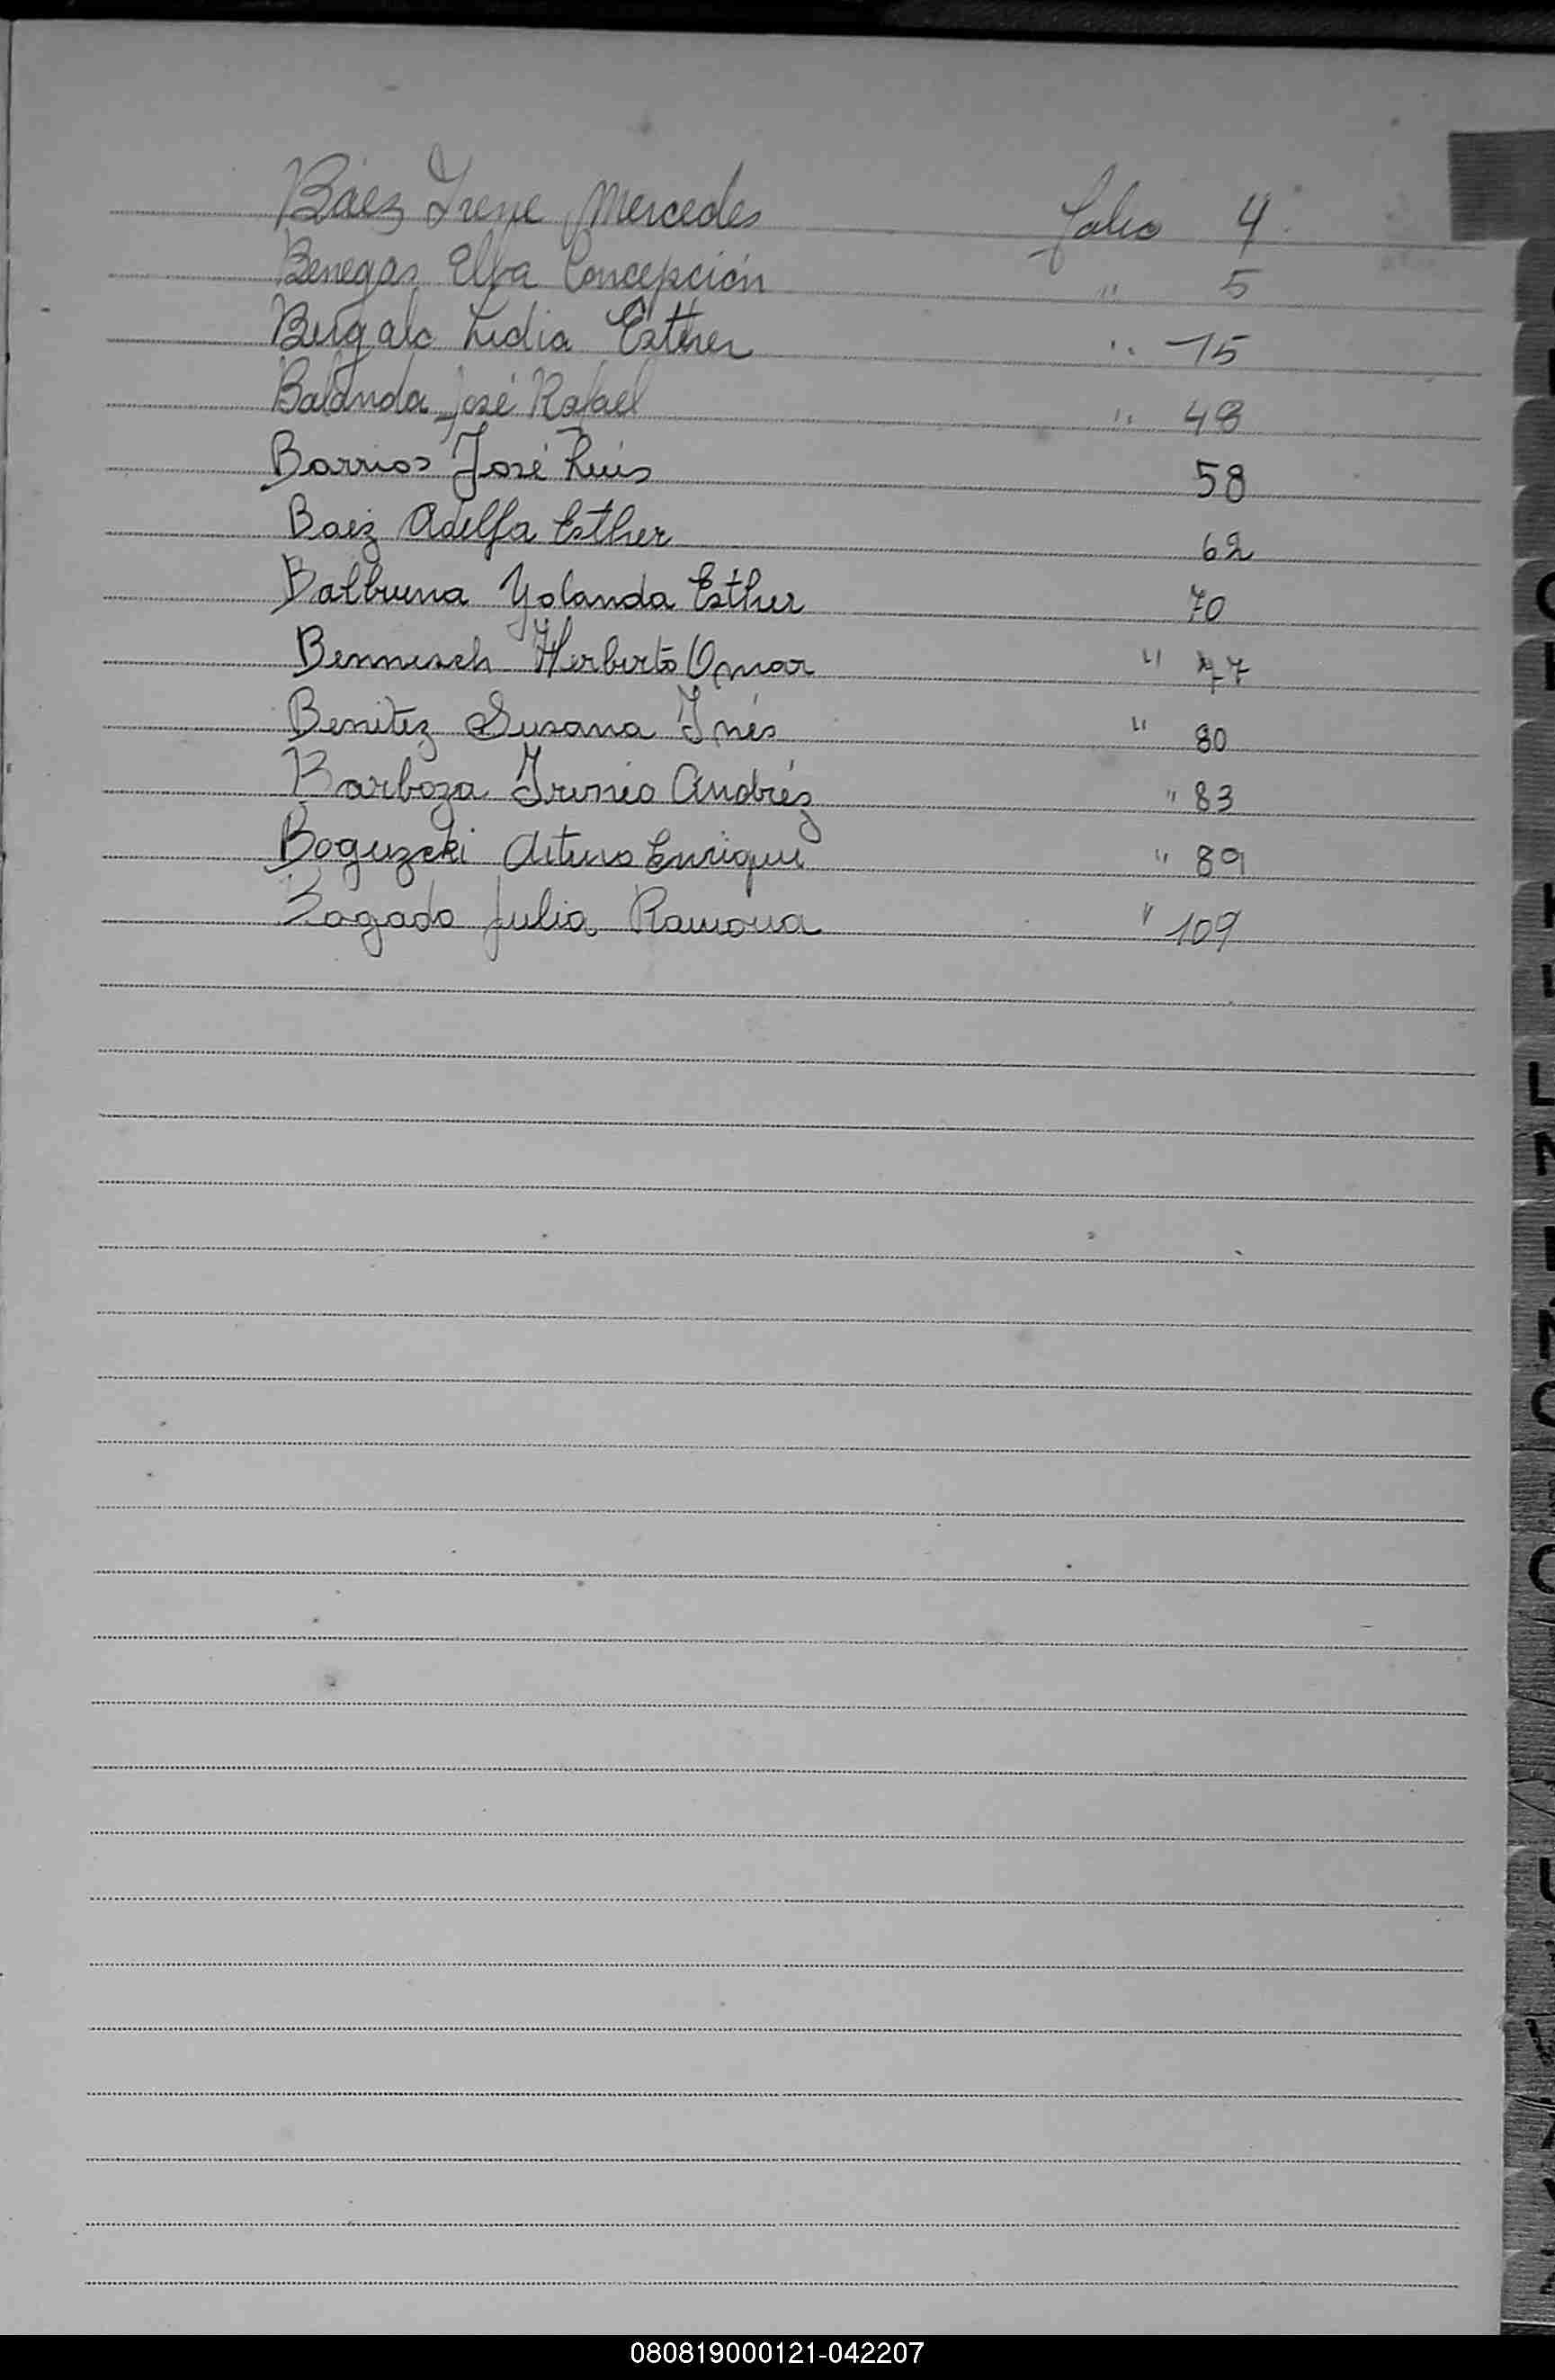 Báez Irene Mercedes folio 4
Benegas Elba Concepción " 5
Bergalo Lidia Esther " 15
Balanda José Rafael " 48
Barrios José Luis 58
Baez Adelfa Esther 62
Balbuena Yolanda Esther 70
Bennesch Herberto Omar " 77
Benitez Susana Inés " 80
Barboza Irineo Andréz " 83
Boguzcki Arturo Enrique " 89
Bogado Julia Ramona " 109
080819000121-042207